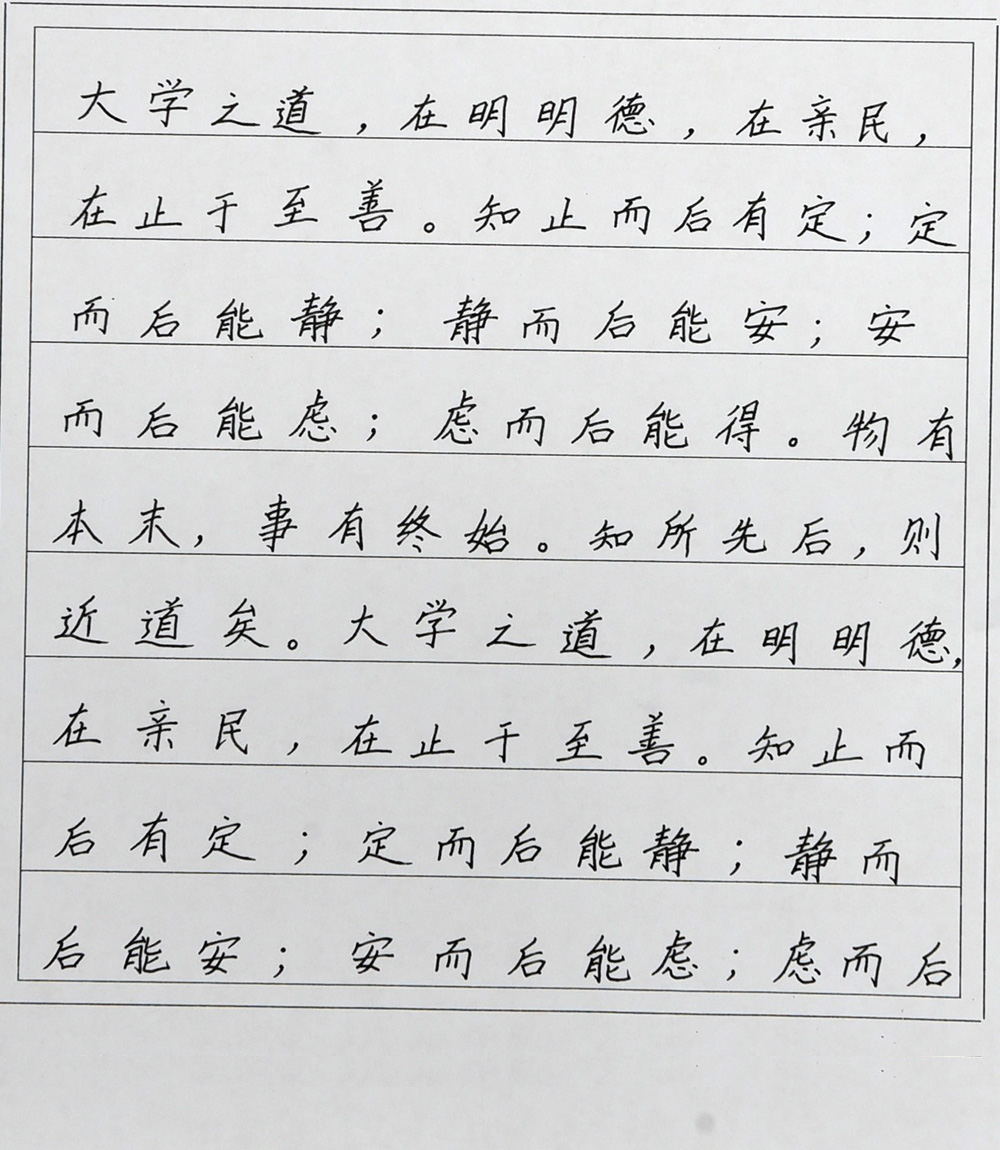 大学之道，在明明德，在亲民，
在止于至善。知止而后有定；定
而后能静；静而后能安；安
而后能虑；虑而后能得。物有
本末，事有终始。知所先后，则
近道矣。大学之道，在明明德，
在亲民，在止于至善。知止而
后有定；定而后能静；静而
后能安；安而后能虑；虑而后